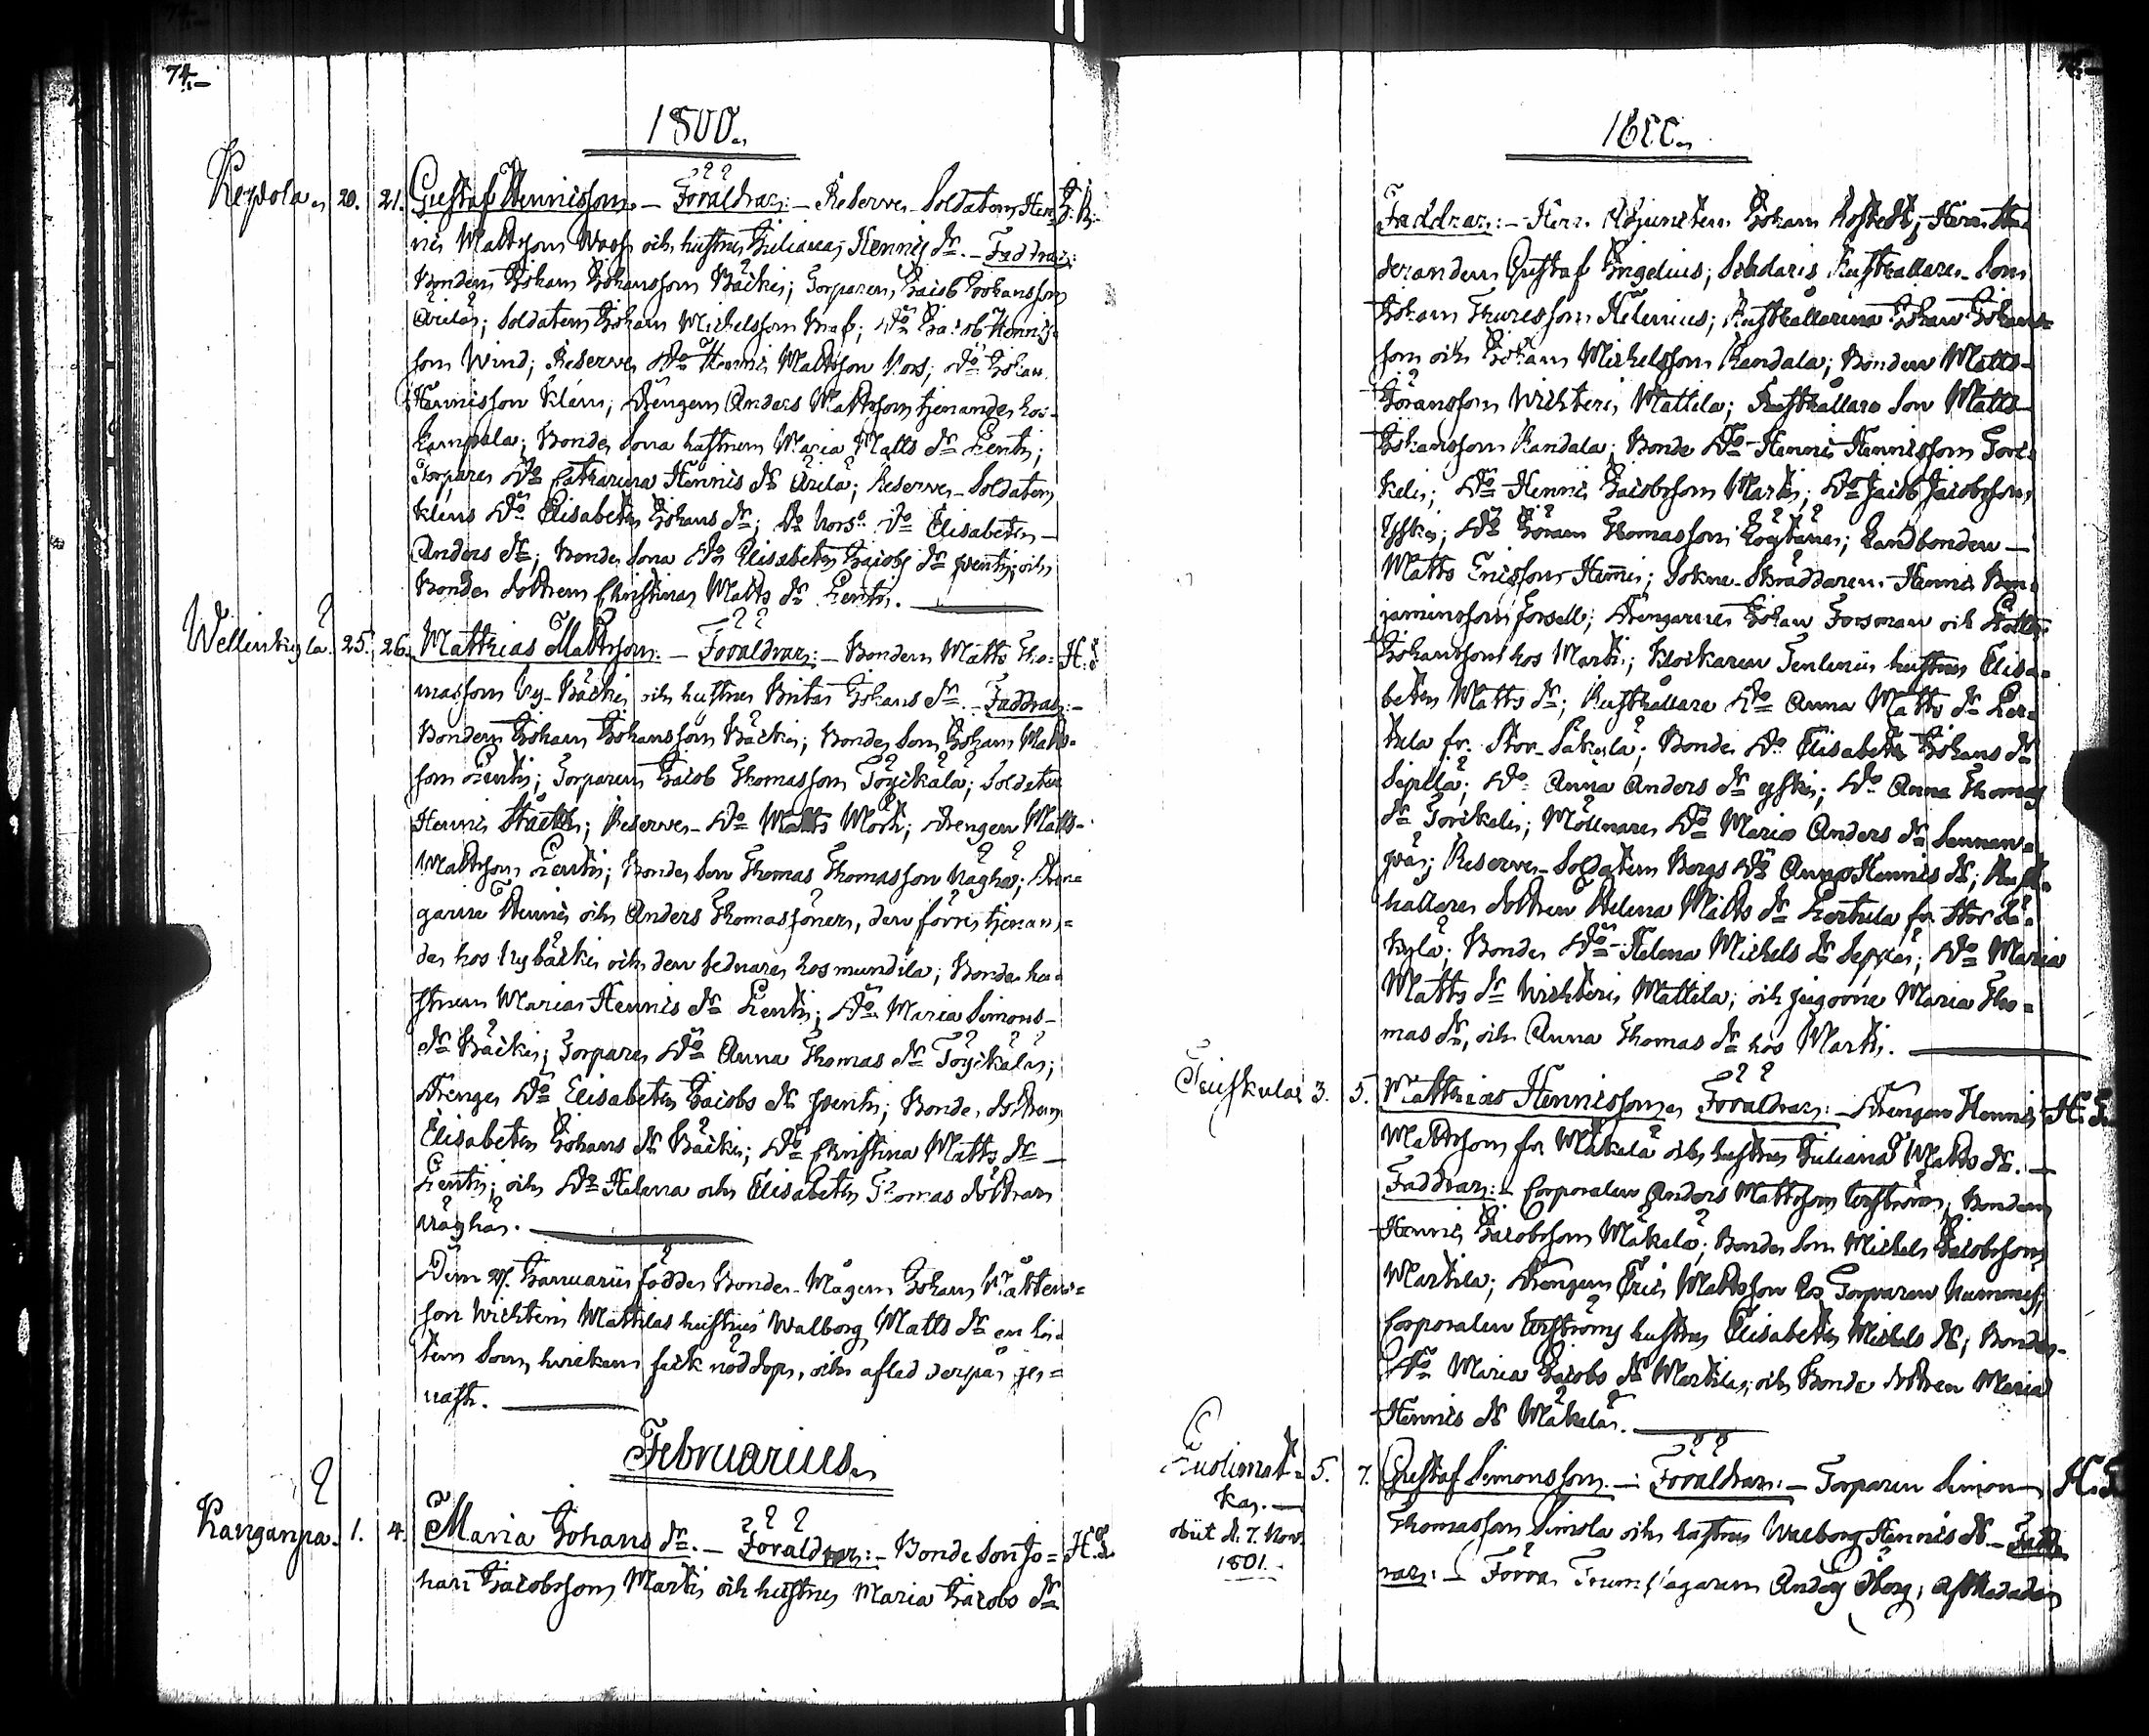 74.
1800.
Keppola. 20. 21. Gustaf Hennisson. — Föräldrar: — Reserve Soldaten Hen= J. R.
nis Mattsson Wors och hustru Juliana Hennis dr. — Faddrar:
Bonden Johan Johansson Bäcki; Torparen Jacob Johansson
Ärilä; Soldaten Johan Michelsson Braf; Do Jacob Hennis=
son Wind; Reserve Do Hennis Mattsson Vors; Do Johan
Hennisson Klén; Drengen Anders Mattsson tjenande hos
Kampala; Bonde Sona hustrun Maria Matts dr Pentti;
Torpare Do Catharina Hennis dr Ärilä; Reserve-Soldaten
Klens Do Elisabeth Johans dr; Do Vors Do Elisabeth
Anders dr; Bonde Sona Do Elisabeth Jacobs dr Pentti; och
Bonde dottren Christina Matts dr Pentti.
25. 26. Matthias Mattsson. — Föräldrar: — Bonden Matts Tho= H. S
masson Ny-Bäcki och hustru Brita Johans dr. — Faddrar: —
Bonden Johan Johansson Bäcki; Bonde Son Johan Matts=
son Pentti; Torparen Jacob Thomasson Töyckälä; Soldaten
Hennis Stolth; Reserve-Do Matts Mörk; Drengen Matts
Mattsson Pentti; Bonde Son Thomas Thomasson Vägha; Dren=
garne Hennis och Anders Thomassöner, den förre tjenan=
de hos Nybäcki och den sednare hos mundila; Bonde hu=
strun Maria Hennis dr Pentti; Do Maria Simons
dr Bäcki; Torpare Do Anna Thomas dr Töyckälä;
Drenge Do Elisabeth Jacobs dr Pentti; Bonde dottren
Elisabeth Johans dr Bäcki; Do Christina Matts dr
Pentti; och Do Helena och Elisabeth Thomas döttrar
Vägha.
Den 27. Januarii födde Bonde-Mågen Johan Mattens=
son Wichteri Mattilas hustru Walborg Matts dr en li=
ten Son, hvilken fick nöddop, och afled derpå ge=
nast.
Februarius.
Kanganpä. 1. 4. Maria Johans dr. — Föräldrar: — Bonde Son Jo= H. S.
han Jacobsson Martti och hustru Maria Jacobs dr
1800.
Faddrar: — Herr Adjuncten Johan Hofstedt; Herr Stu
deranden Gustaf Ingelius; Rusthållare Son
Johan Thuresson Helenius; Rusthållarena Johan Johans=
son och Johan Michelsson Randala; Bonden Matts
Göransson Wichteri Mattila; Rusthållare Son Matts
Johansson Randala; Bonde Do Hennis Hennisson Tori=
keli; Do Hennis Jacobsson Martti; Do Jacob Jacobsson
Yski; Do Göran Thomasson Löytäne; Landbonden
Matts Ericsson Hemmi; Sokne-Skräddaren Hennis Ben=
jaminsson Forsell; Drengarne Johan Forsman och Matts
Johansson hos Martti; Klockaren Tenlenii hustru Elisa=
beth Matts dr; Rusthållare Do Anna Matts dr Ker=
tula fr. Stor-Säkylä; Bonde Do Elisabeth Johans dr
Sipilä; Do Anna Anders dr Yski; Do Anna Thomas
dr Torikeli; Möllnare Do Maria Anders dr
Reserve-Soldaten Borgs Do Anna Hennis dr; Rust=
hållare dottren Helena Matts dr Kertula fr. Stor Sä=
kylä; Bonde Do Helena Michels dr Seppä; Do Maria
Matts dr Wichteri Mattila; och pigorne Maria Tho=
mas dr, och Anna Thomas dr hos Martti.
3. 5. Matthias Hennisson. Föräldrar: — Drengen Hennis H. S.
Mattsson fr. Mäkelä och hustru Juliana Matts dr. —
Faddrar: — Corporalen Anders Mattsson Torström; Bonden
Hennis Jacobsson Mäkelä; Bonde Son Michel Jacobsson
Martila; Drengen Eric Mattsson hos Torparen
Corporalen Torströms hustru Elisabeth Michels dr; Bonde
Do Maria Jacobs dr Martila; och Bonde dottren Maria
Hennis dr Mäkelä.
5. 7. Gustaf Simonsson. — Föräldrar: — Torparen Simon H. S.
Thomasson Simola och hustru Walborg Hennis dr. — Fadd
rar: — Förra Trumslagaren Anders Öberg; Afskedade
obiit d. 7. Nov.
1801.